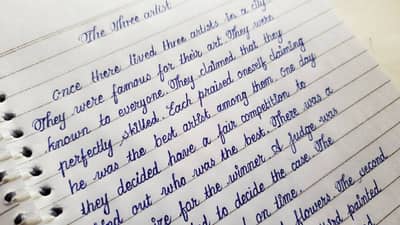 The three artist
Once there lived three artists in a city.
They were famous for their art. They were
known to everyone. They claimed, that they
perfectly skilled. Each praised oneself claiming
he was the best artist among them. One day
they decided have a fair competition to
find out who was the best. There was a
for the winner. A judge was
to decide the case. The
on time.
flowers. The second
painted